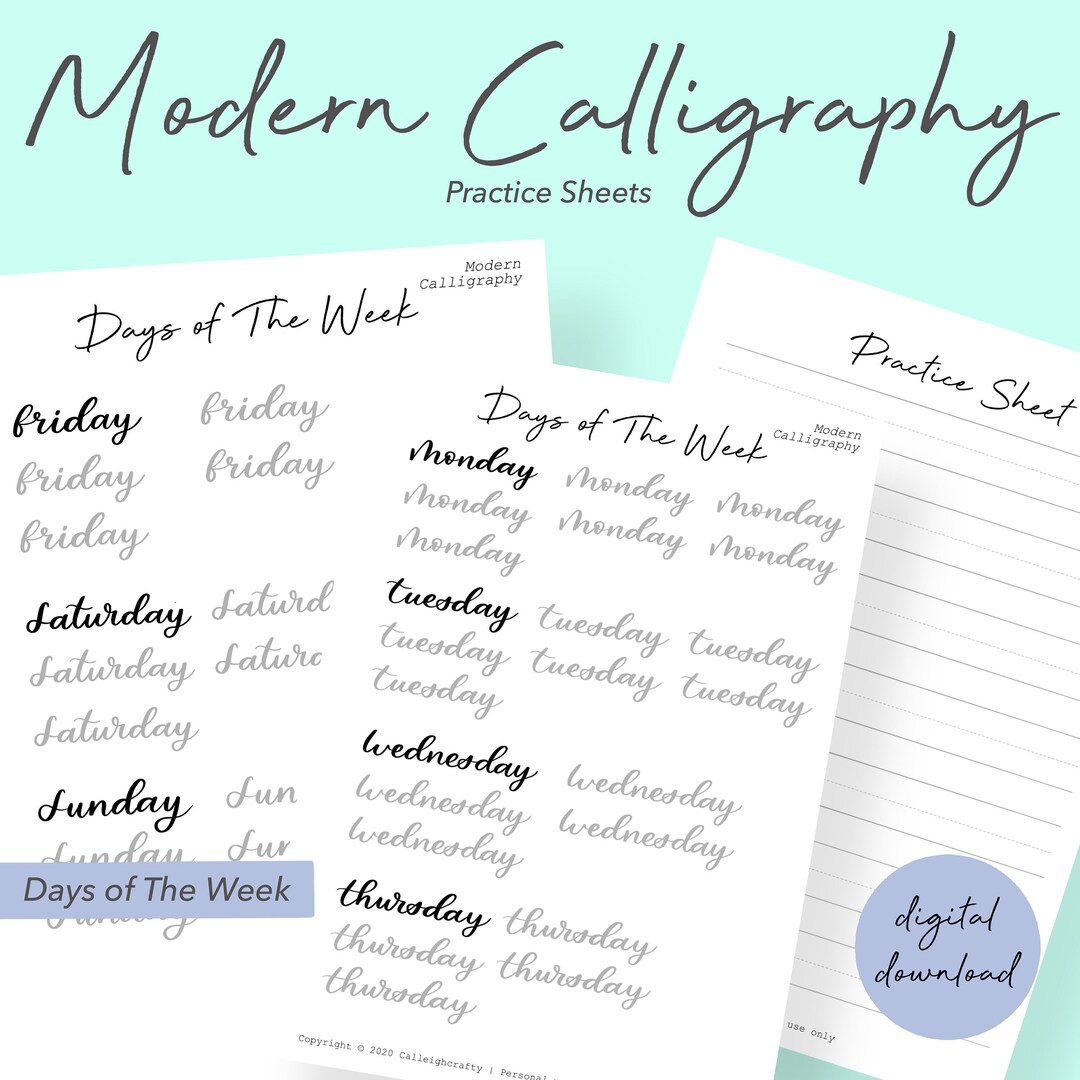 Modern Calligraphy
Practice Sheets
Modern
Calligraphy
Days of The Week
friday friday
friday friday
friday
saturday saturd
saturday saturc
saturday
sunday sun
sunday sur
sunday
Days of The Week
Days of The Week
Modern
Calligraphy
monday monday monday
monday monday monday
monday
tuesday tuesday tuesday
tuesday tuesday tuesday
tuesday
wednesday wednesday
wednesday wednesday
wednesday
thursday thursday
thursday thursday
thursday
Copyright © 2020 Calleighcrafty | Personal
Practice Sheet
use only
digital
download